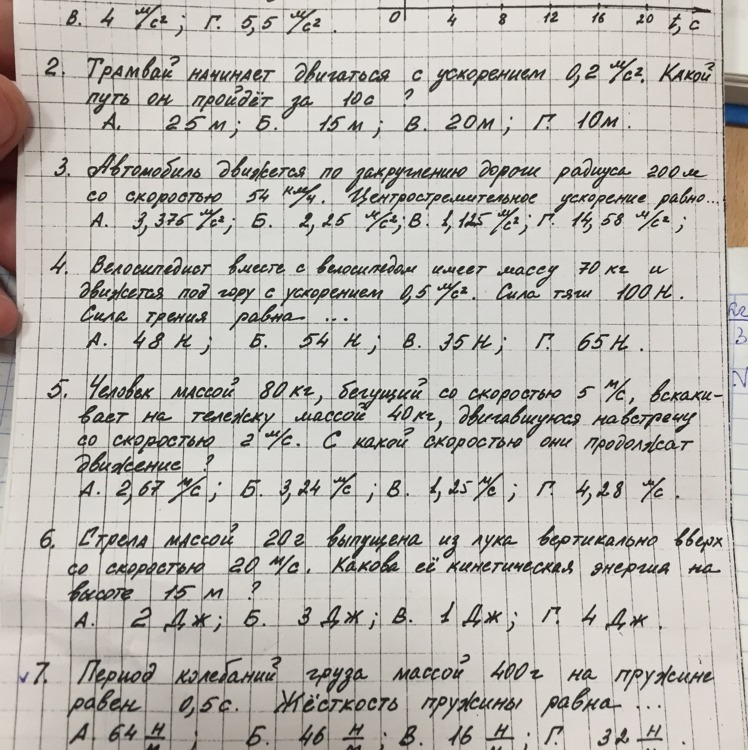 В. 4 м/с²; Г. 5,5 м/с².
0 4 8 12 16 20 t, с
2. Трамвай начинает двигаться с ускорением 0,2 м/с². Какой
путь он пройдёт за 10с ?
А. 25 м; Б. 15 м; В. 20м; Г. 10м.
3. Автомобиль движется по закруглению дороги радиуса 200м
со скоростью 54 км/ч. Центростремительное ускорение равно...
А. 3,375 м/с²; Б. 2,25 м/с²; В. 1,125 м/с²; Г. 14,58 м/с²;
4. Велосипедист вместе с велосипедом имеет массу 70 кг и
движется под гору с ускорением 0,5 м/с². Сила тяги 100 Н.
Сила трения равна ...
А. 48 Н; Б. 54 Н; В. 35 Н; Г. 65 Н.
5. Человек массой 80 кг, бегущий со скоростью 5 м/с, вскаки-
вает на тележку массой 40 кг, двигавшуюся навстречу
со скоростью 2 м/с. С какой скоростью они продолжат
движение ?
А. 2,67 м/с; Б. 3,24 м/с; В. 1,25 м/с; Г. 4,28 м/с.
6. Стрела массой 20 г выпущена из лука вертикально вверх
со скоростью 20 м/с. Какова её кинетическая энергия на
высоте 15 м ?
А. 2 Дж; Б. 3 Дж; В. 1 Дж; Г. 4 Дж.
7. Период колебаний груза массой 400г на пружине
равен 0,5с. Жёсткость пружины равна ...
А. 64 Н/м; Б. 46 Н/м; В. 16 Н/м; Г. 32 Н/м